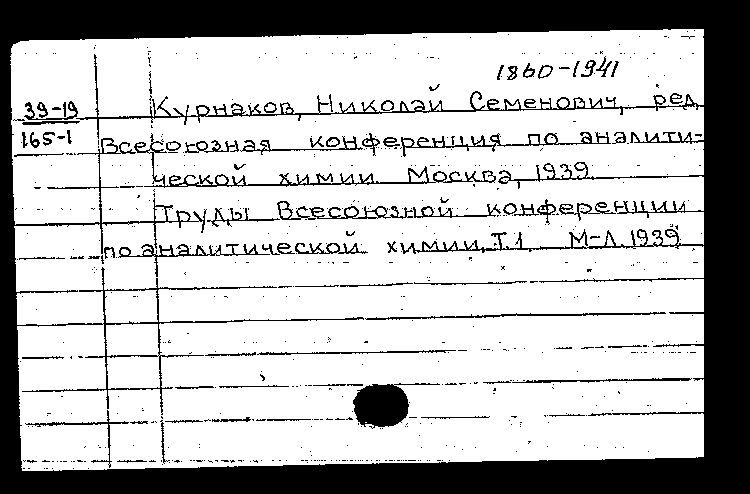 1860-1941
39-19
165-1
Курнаков, Николай Семенович, ред.
Всесоюзная конференция по аналити-
ческой химии. Москва, 1939.
Труды Всесоюзной конференции
по аналитической химии, Т.1 М-Л. 1939